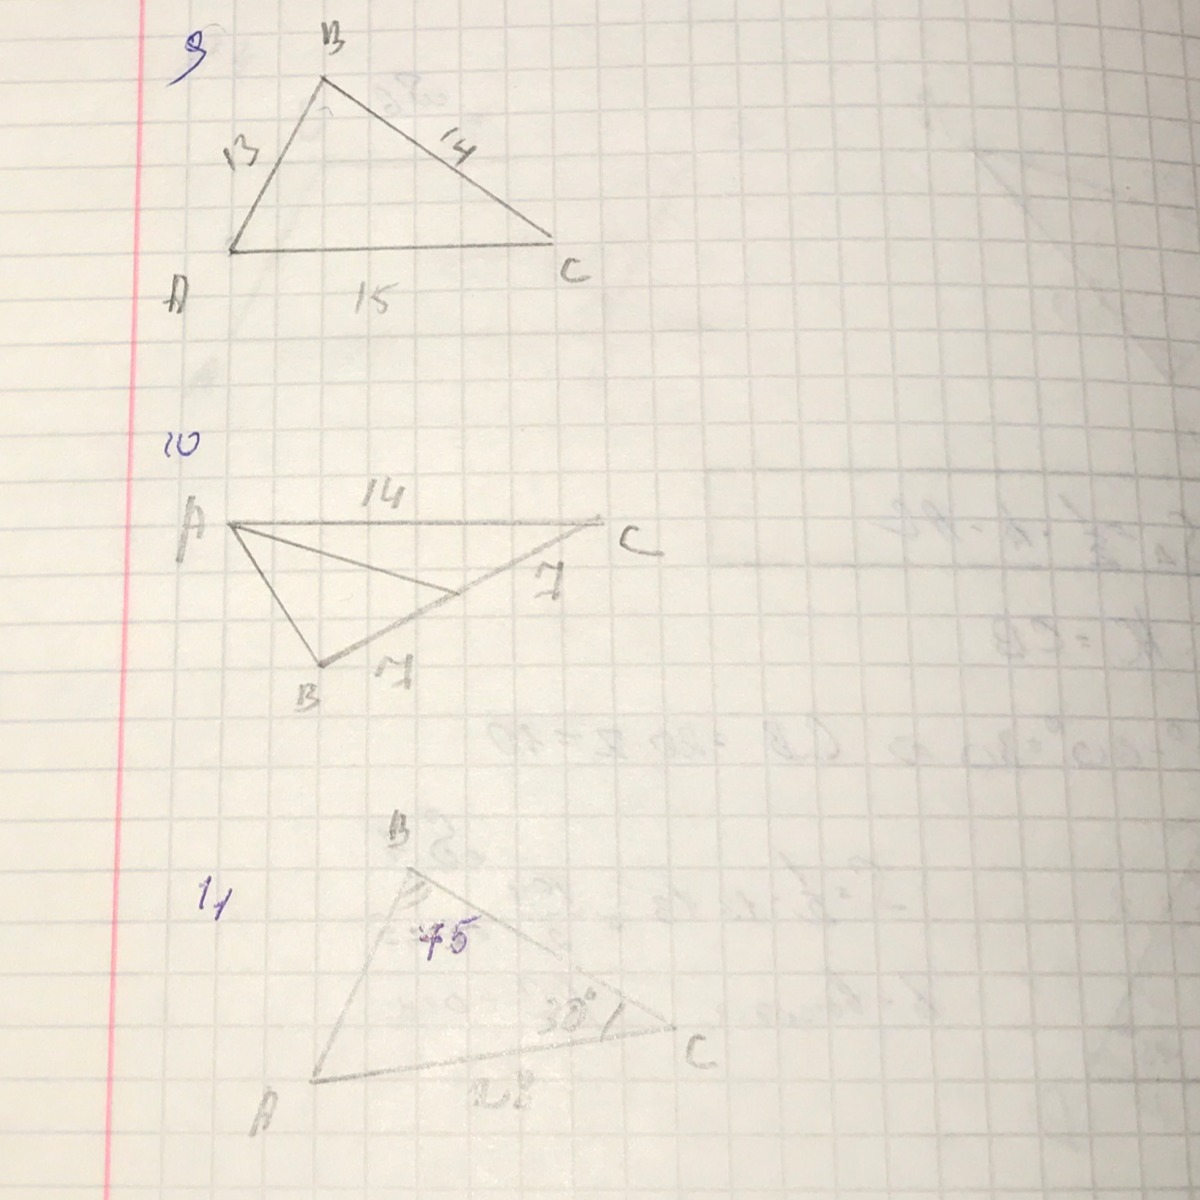 9
B
13
14
A
C
15
10
14
A
C
7
B
7
B
11
75
30°
C
A